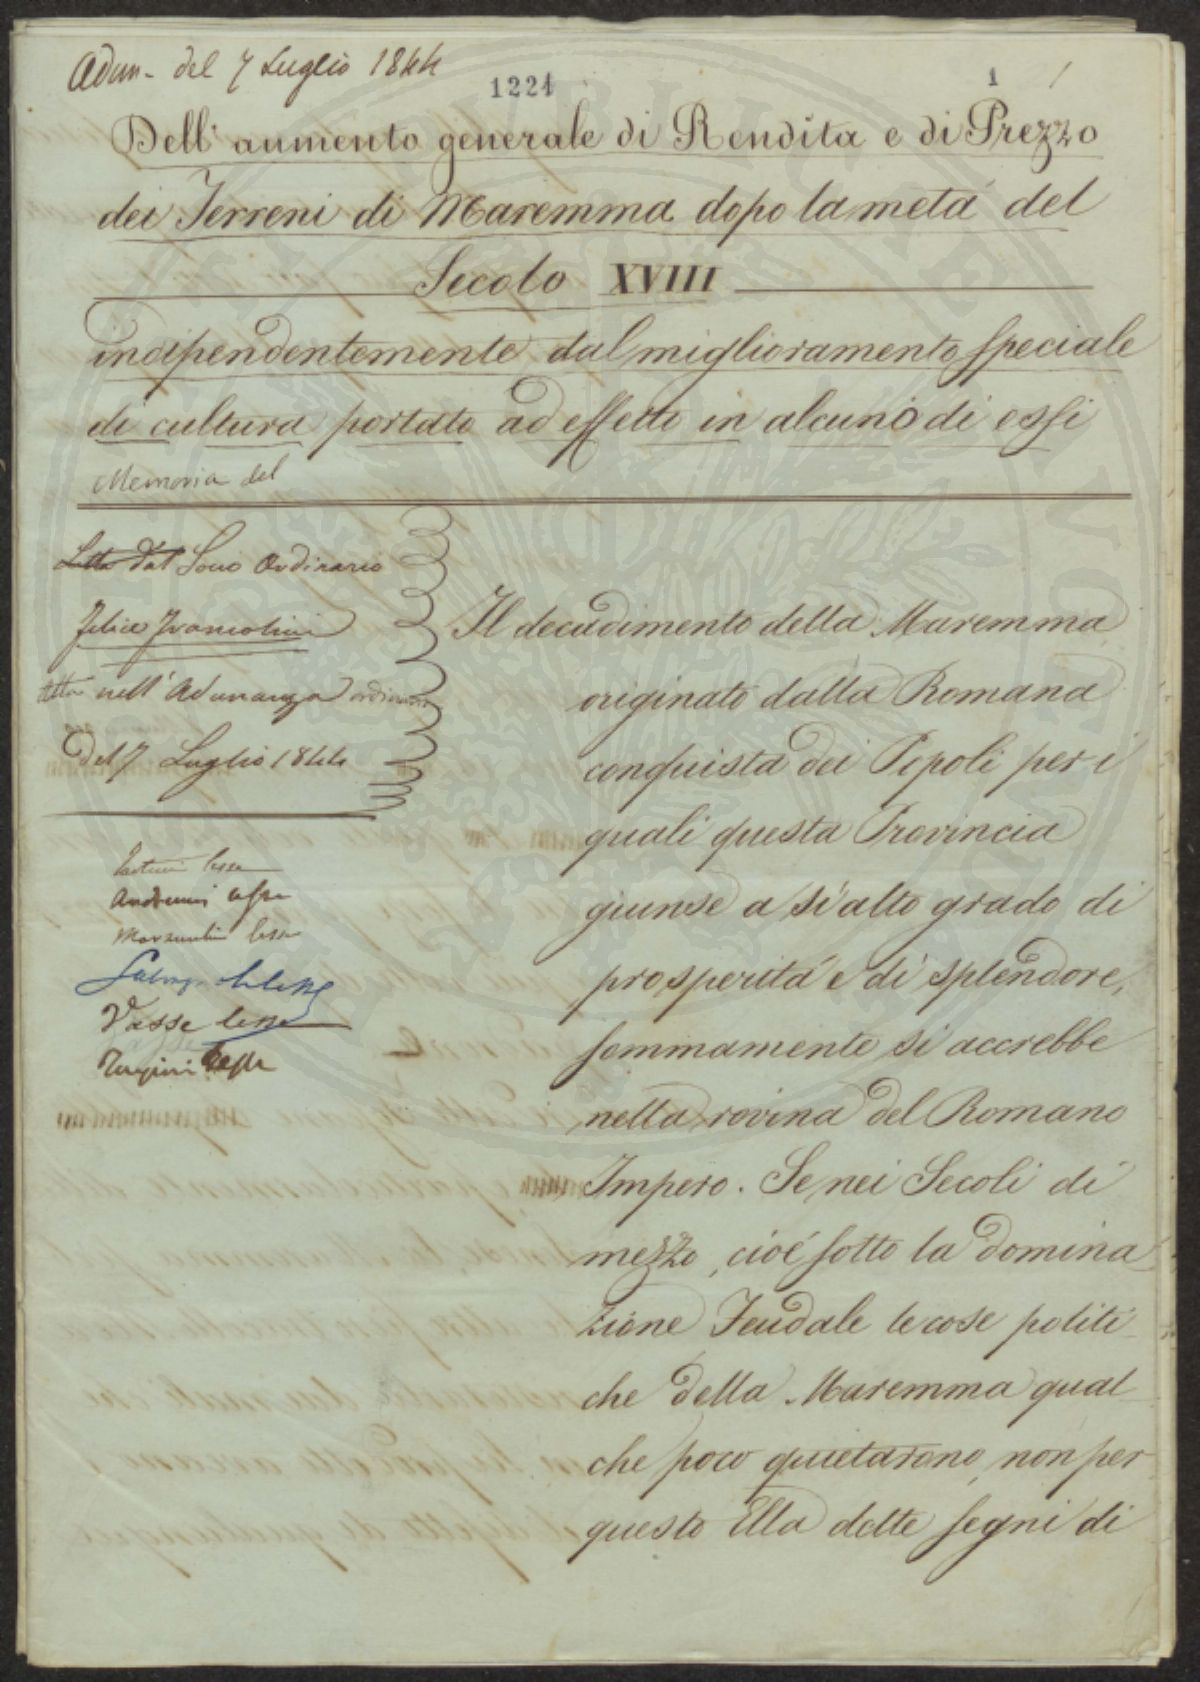 Adun. del 7 Luglio 1844
1224
1
1
Dell'aumento generale di Rendita e di Prezzo
dei Terreni di Maremma dopo la metá del
Secolo XVIII
indipendentemente dal miglioramento speciale
di cultura portato ad effetto in alcuno di essi
Memoria del
Letta dal Socio Ordinario
Felice Francolini
letta nell'Adunanza ordinaria
del 7 Luglio 1844
Andreucci lesse
lesse
Vasse lesse
lesse
Il decadimento della Maremma
originato dalla Romana
conquista dei Popoli per i
quali questa Provincia
giunse a sí alto grado di
prosperitá e di splendore,
sommamente si accrebbe
nella rovina del Romano
Impero. Se nei Secoli di
mezzo, cioé sotto la domina
zione Feudale le cose politi
che della Maremma qual
che poco quietarono, non per
questo Ella dette segni di